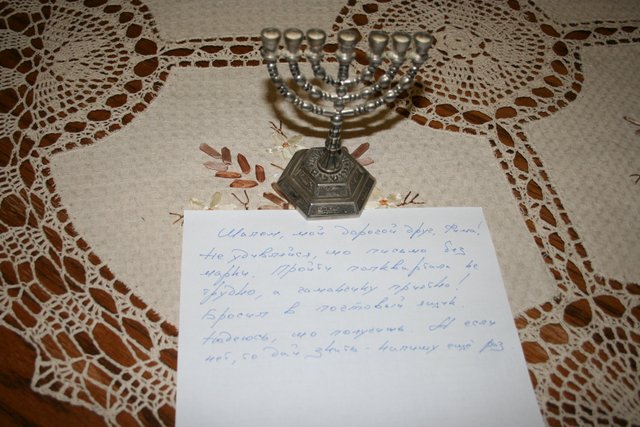 Шалом, мой дорогой друг, Яна!
Не удивляйся, что письмо без
марки. Пройти полквартала не
трудно, а сами приятно!
Бросил в почтовый ящик.
Надеюсь, что получишь. А если
нет, то дай знать - напишу ещё раз